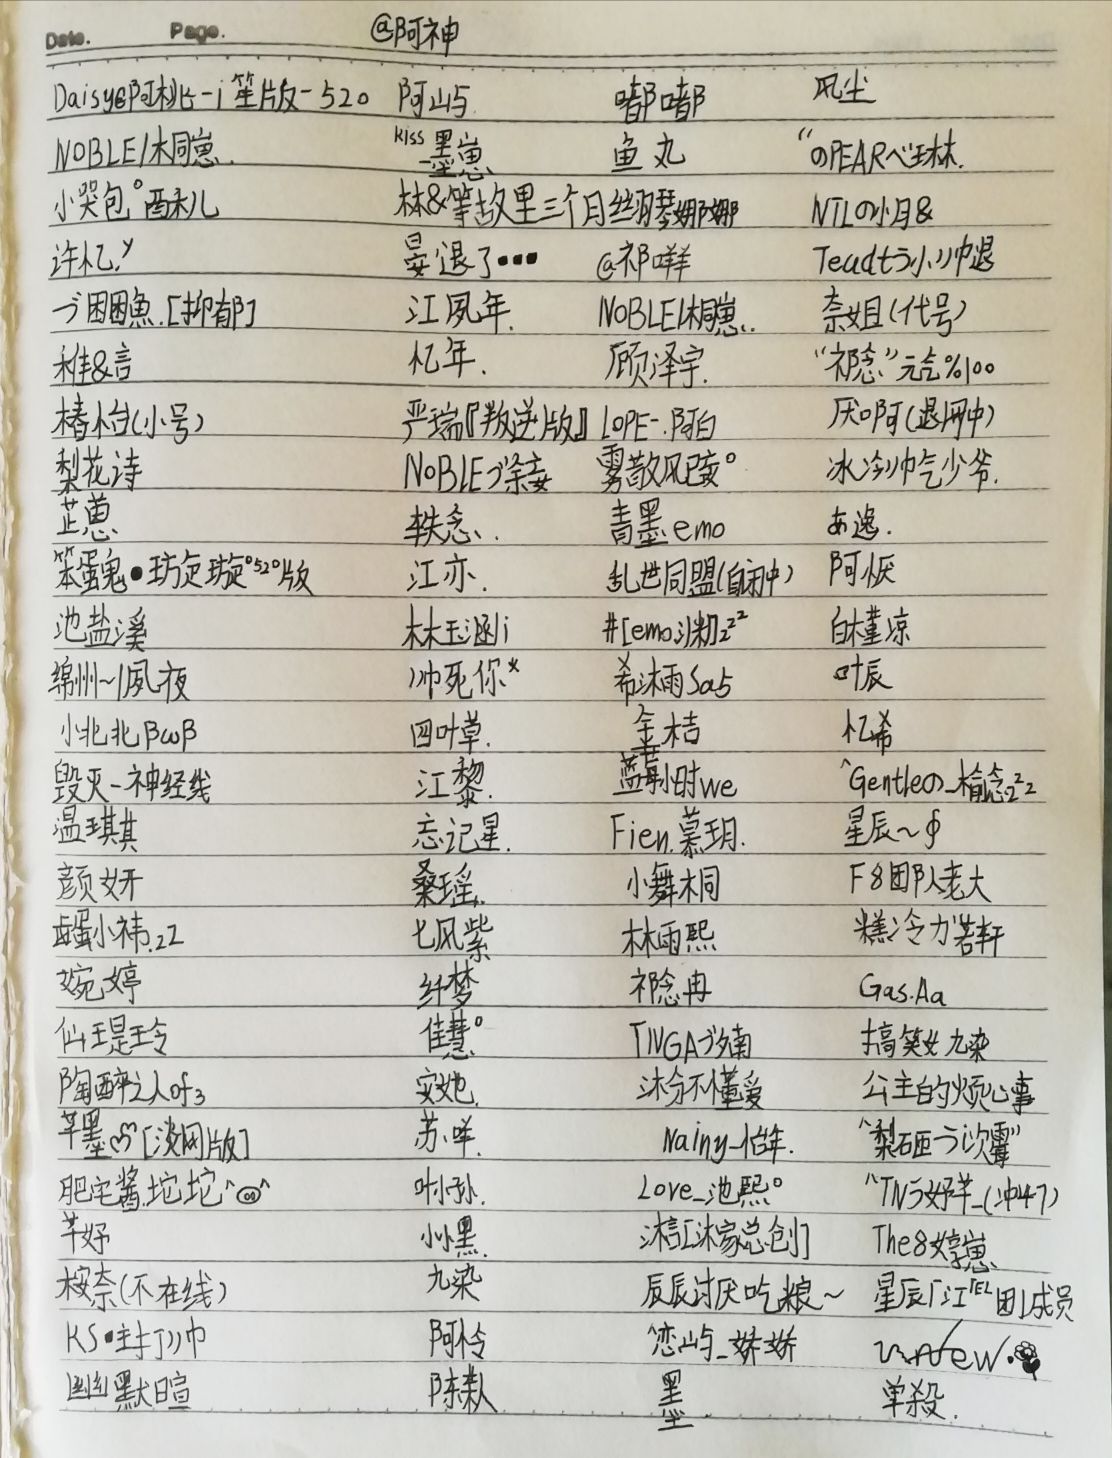 Date. Page. @阿神
Daisy@阿桃-i笙版-520 阿屿 嘟嘟 风尘
NOBLE/桐崽. kiss墨崽 鱼丸 “のPEARべ琳.
小哭包°酥儿 林&等故里三个月丝羽琴娜娜 NTLの小月&
许忆.y 晏退了••• @祁咩 Teadtラ小帅退
づ困困魚.[抑郁] 江夙年. NOBLE/桐崽.. 奈姐(代号)
稚&言 忆年. 顾泽宇. “祁念”元气%100
椿台(小号) 严瑞『叛逆版』 LOPE-.阿白 厌啊(退网中)
梨花诗 NOBLEづ涂妄 雾散风已妄° 冰冷帅气少爷.
芷蒽 轶念. 青墨emo あ逸.
笨蛋鬼•玏旋璇°520版 江亦. 乱世同盟(自闭中) 阿恹
池盐溪 林玉涵i #[emo沏粈]zzz 白槿凉
绵州~/夙夜 帅死你* 希沐雨Sa5 叶辰
小北北βωβ 四叶草. 金桔 忆希
毁灭-神经线 江黎. 蓝莓小时we ^Gentleの_榆念zzz
温琪其 忘记星. Fien.慕玥. 星辰~∮
颜妍 桑瑶. 小舞桐 F8团队老大
小祎.zz 七风紫 林雨熙 糕冷力若轩
婉婷 纤梦 祁念冉 Gas.Aa
仙是玲 佳慧° TNGAづ南 搞笑女九染
陶醉之人of3 安她. 沐分不懂爱 公主的烦心事
芊墨[淡网版] 苏咩. Nainy_怡年. “梨砸ラi次霉”
肥宅酱.坨坨^ꙭ^ 叶小孙. Love_池熙° ^TNラ好羊_(冲47)
芊好 小黑. 沐言[沐家总创] The8婷崽.
桉奈(不在线) 九染 辰辰讨厌吃粮~ 星辰「江TEL团」成员
KS•主打帅 阿怜 ^恋屿_娇娇
幽幽默暄 陈歉 墨. 单殺.